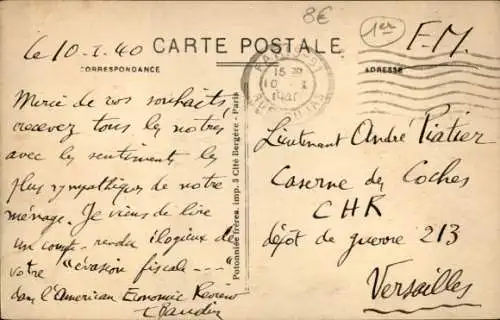 8€
1er
Le 10-I-40
CARTE POSTALE
F.M.
CORRESPONDANCE
ADRESSE
PARIS
15
10 I
Merci de vos souhaits
recevez tous les nôtres
avec les sentiments les
plus sympathiques de notre
ménage. Je viens de lire
un compte-rendu élogieux de
votre "évasion fiscale ---"
dans l'American Economic Review
Potonniée frères. imp. 5 Cité Bergère - Paris
Lieutenant André Piatier
Caserne des Coches
CHR
dépôt de guerre 213
Versailles